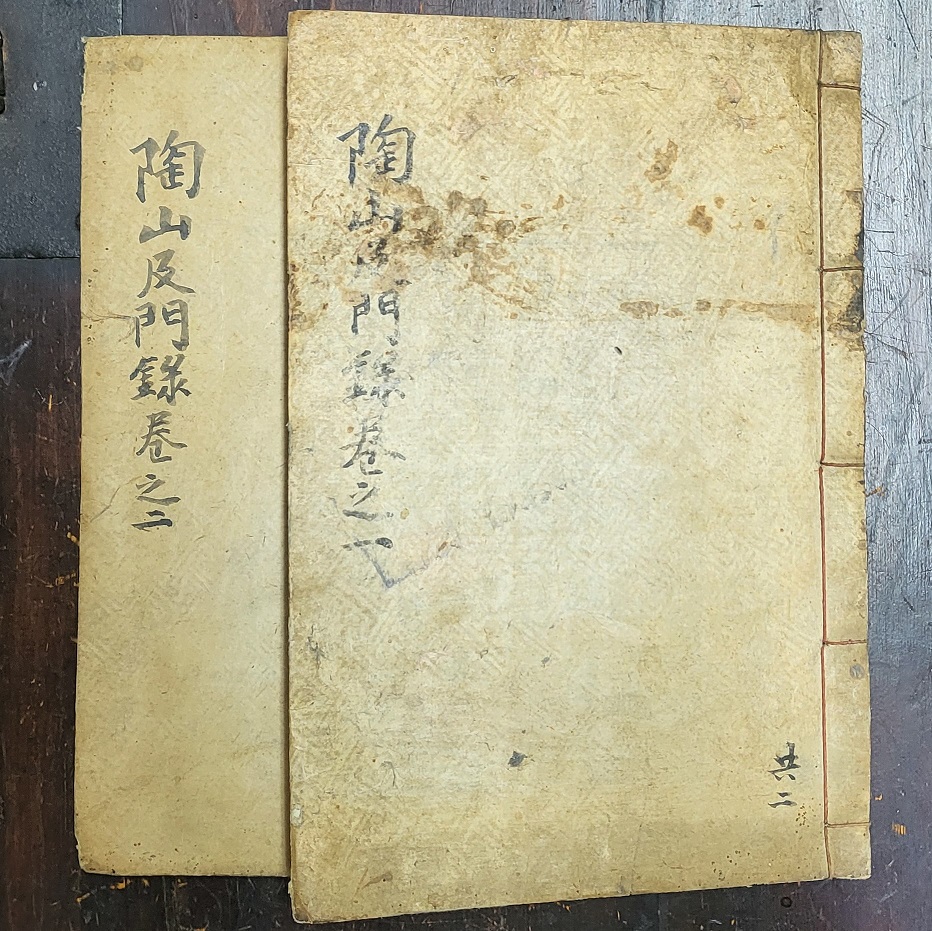 陶山及門錄卷之一
共二
陶山及門錄卷之二